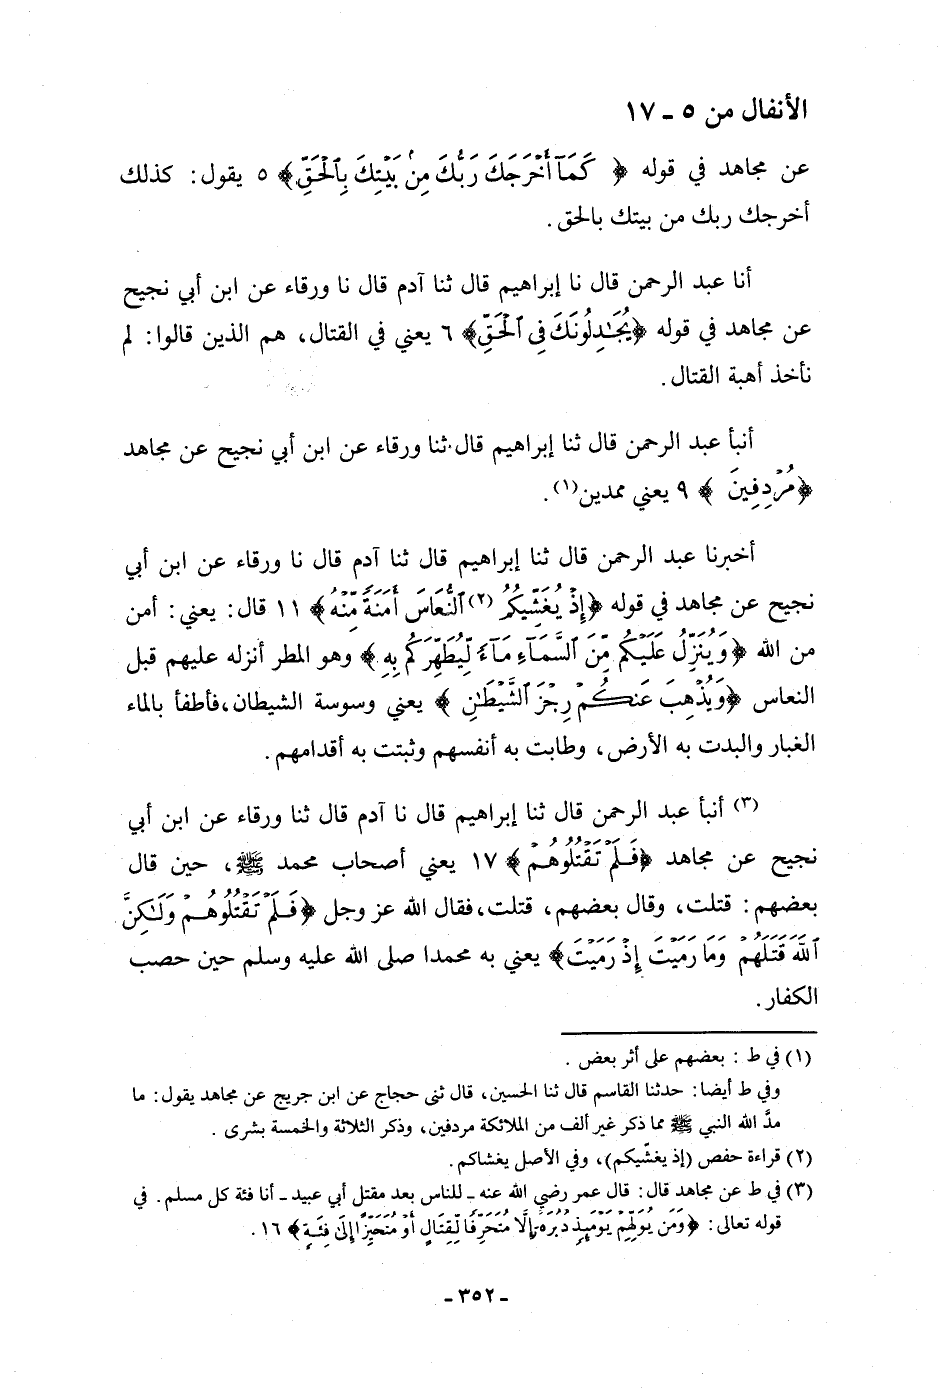 الأنفال من ٥ ـ ١٧
عن مجاهد في قوله ﴿ كَمَآ أَخْرَجَكَ رَبُّكَ مِنۢ بَيْتِكَ بِٱلْحَقِّ﴾ ٥ يقول: كذلك
أخرجك ربك من بيتك بالحق.
أنا عبد الرحمن قال نا إبراهيم قال ثنا آدم قال نا ورقاء عن ابن أبي نجيح
عن مجاهد في قوله ﴿يُجَٰدِلُونَكَ فِى ٱلْحَقِّ﴾ ٦ يعني في القتال، هم الذين قالوا: لم
نأخذ أهبة القتال.
أنبأ عبد الرحمن قال ثنا إبراهيم قال ثنا ورقاء عن ابن أبي نجيح عن مجاهد
﴿مُرْدِفِينَ ﴾ ٩ يعني ممدين(١).
أخبرنا عبد الرحمن قال ثنا إبراهيم قال ثنا آدم قال نا ورقاء عن ابن أبي
نجيح عن مجاهد في قوله ﴿إِذْ يُغَشِّيكُمُ (٢) ٱلنُّعَاسَ أَمَنَةً مِّنْهُ﴾ ١١ قال: يعني: أمن
من الله ﴿وَيُنَزِّلُ عَلَيْكُم مِّنَ ٱلسَّمَآءِ مَآءً لِّيُطَهِّرَكُم بِهِۦ﴾ وهو المطر أنزله عليهم قبل
النعاس ﴿وَيُذْهِبَ عَنكُمْ رِجْزَ ٱلشَّيْطَٰنِ ﴾ يعني وسوسة الشيطان،فأطفأ بالماء
الغبار والبدت به الأرض، وطابت به أنفسهم وثبتت به أقدامهم.
(٣) أنبأ عبد الرحمن قال ثنا إبراهيم قال نا آدم قال ثنا ورقاء عن ابن أبي
نجيح عن مجاهد ﴿فَلَمْ تَقْتُلُوهُمْ﴾ ١٧ يعني أصحاب محمد ﷺ، حين قال
بعضهم: قتلت، وقال بعضهم، قتلت،فقال الله عز وجل ﴿فَلَمْ تَقْتُلُوهُمْ وَلَٰكِنَّ
ٱللَّهَ قَتَلَهُمْ وَمَا رَمَيْتَ إِذْ رَمَيْتَ﴾ يعني به محمدا صلى الله عليه وسلم حين حصب
الكفار.
(١) في ط : بعضهم على أثر بعض .
وفي ط أيضا: حدثنا القاسم قال ثنا الحسين، قال ثنى حجاج عن ابن جريج عن مجاهد يقول: ما
مدَّ الله النبي ﷺ مما ذكر غير ألف من الملائكة مردفين، وذكر الثلاثة والخمسة بشرى .
(٢) قراءة حفص (إذ يغشّيكم)، وفي الأصل يغشاكم.
(٣) في ط عن مجاهد قال: قال عمر رضي الله عنه ـ للناس بعد مقتل أبي عبيد ـ أنا فئة كل مسلم. في
قوله تعالى: ﴿وَمَن يُوَلِّهِمْ يَوْمَئِذٍ دُبُرَهُۥٓ إِلَّا مُتَحَرِّفًا لِّقِتَالٍ أَوْ مُتَحَيِّزًا إِلَىٰ فِئَةٍ﴾ ١٦.
ـ ٣٥٢ ـ